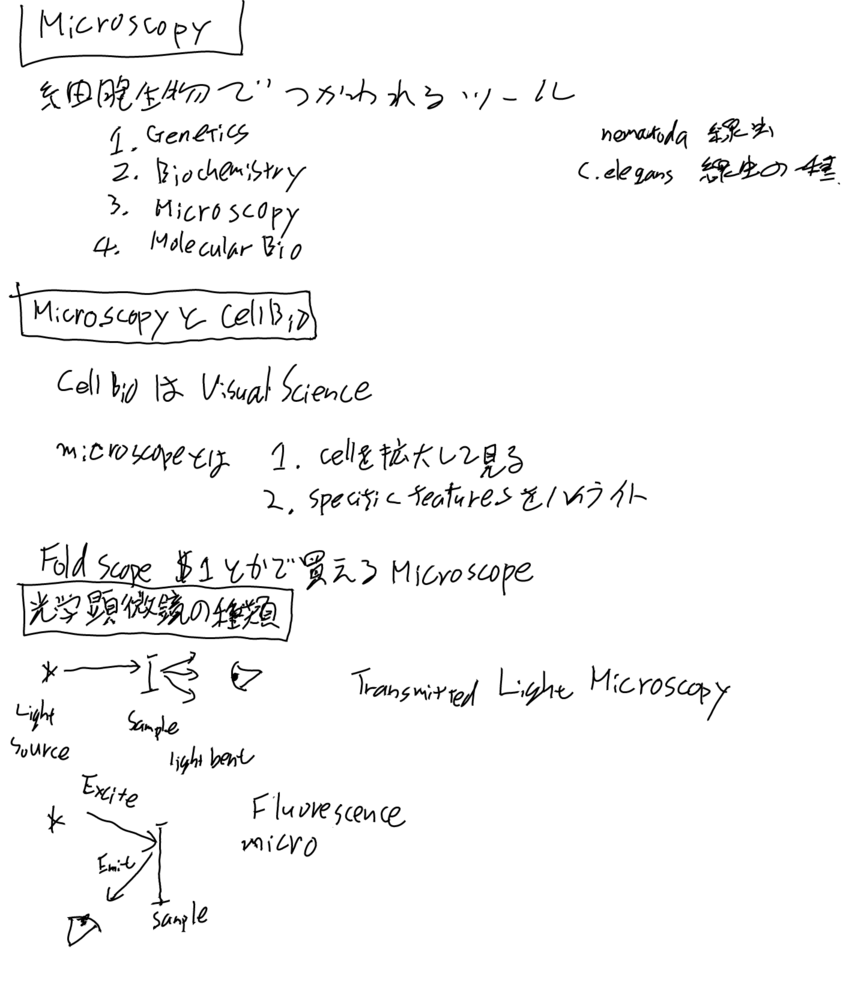 Microscopy
細胞生物でつかわれるツール
1. Genetics
2. Biochemistry
3. Microscopy
4. Molecular Bio
nematoda 線虫
C. elegans 線虫の種
Microscopyと Cell Bio
Cell Bio は Visual Science
microscopeとは 1. cellを拡大して見る
2. specific featuresをハイライト
Fold Scope $1とかで買える Microscope
光学顕微鏡の種類
Light Source
Sample
light bent
Transmitted Light Microscopy
Excite
Emit
Sample
Fluorescence
micro